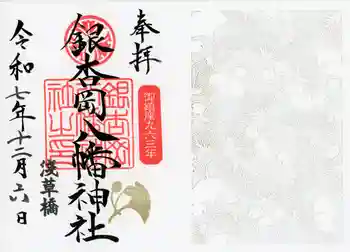 奉拝
御鎮座九六三年
銀杏岡八幡神社
浅草橋
令和七年十二月二六日